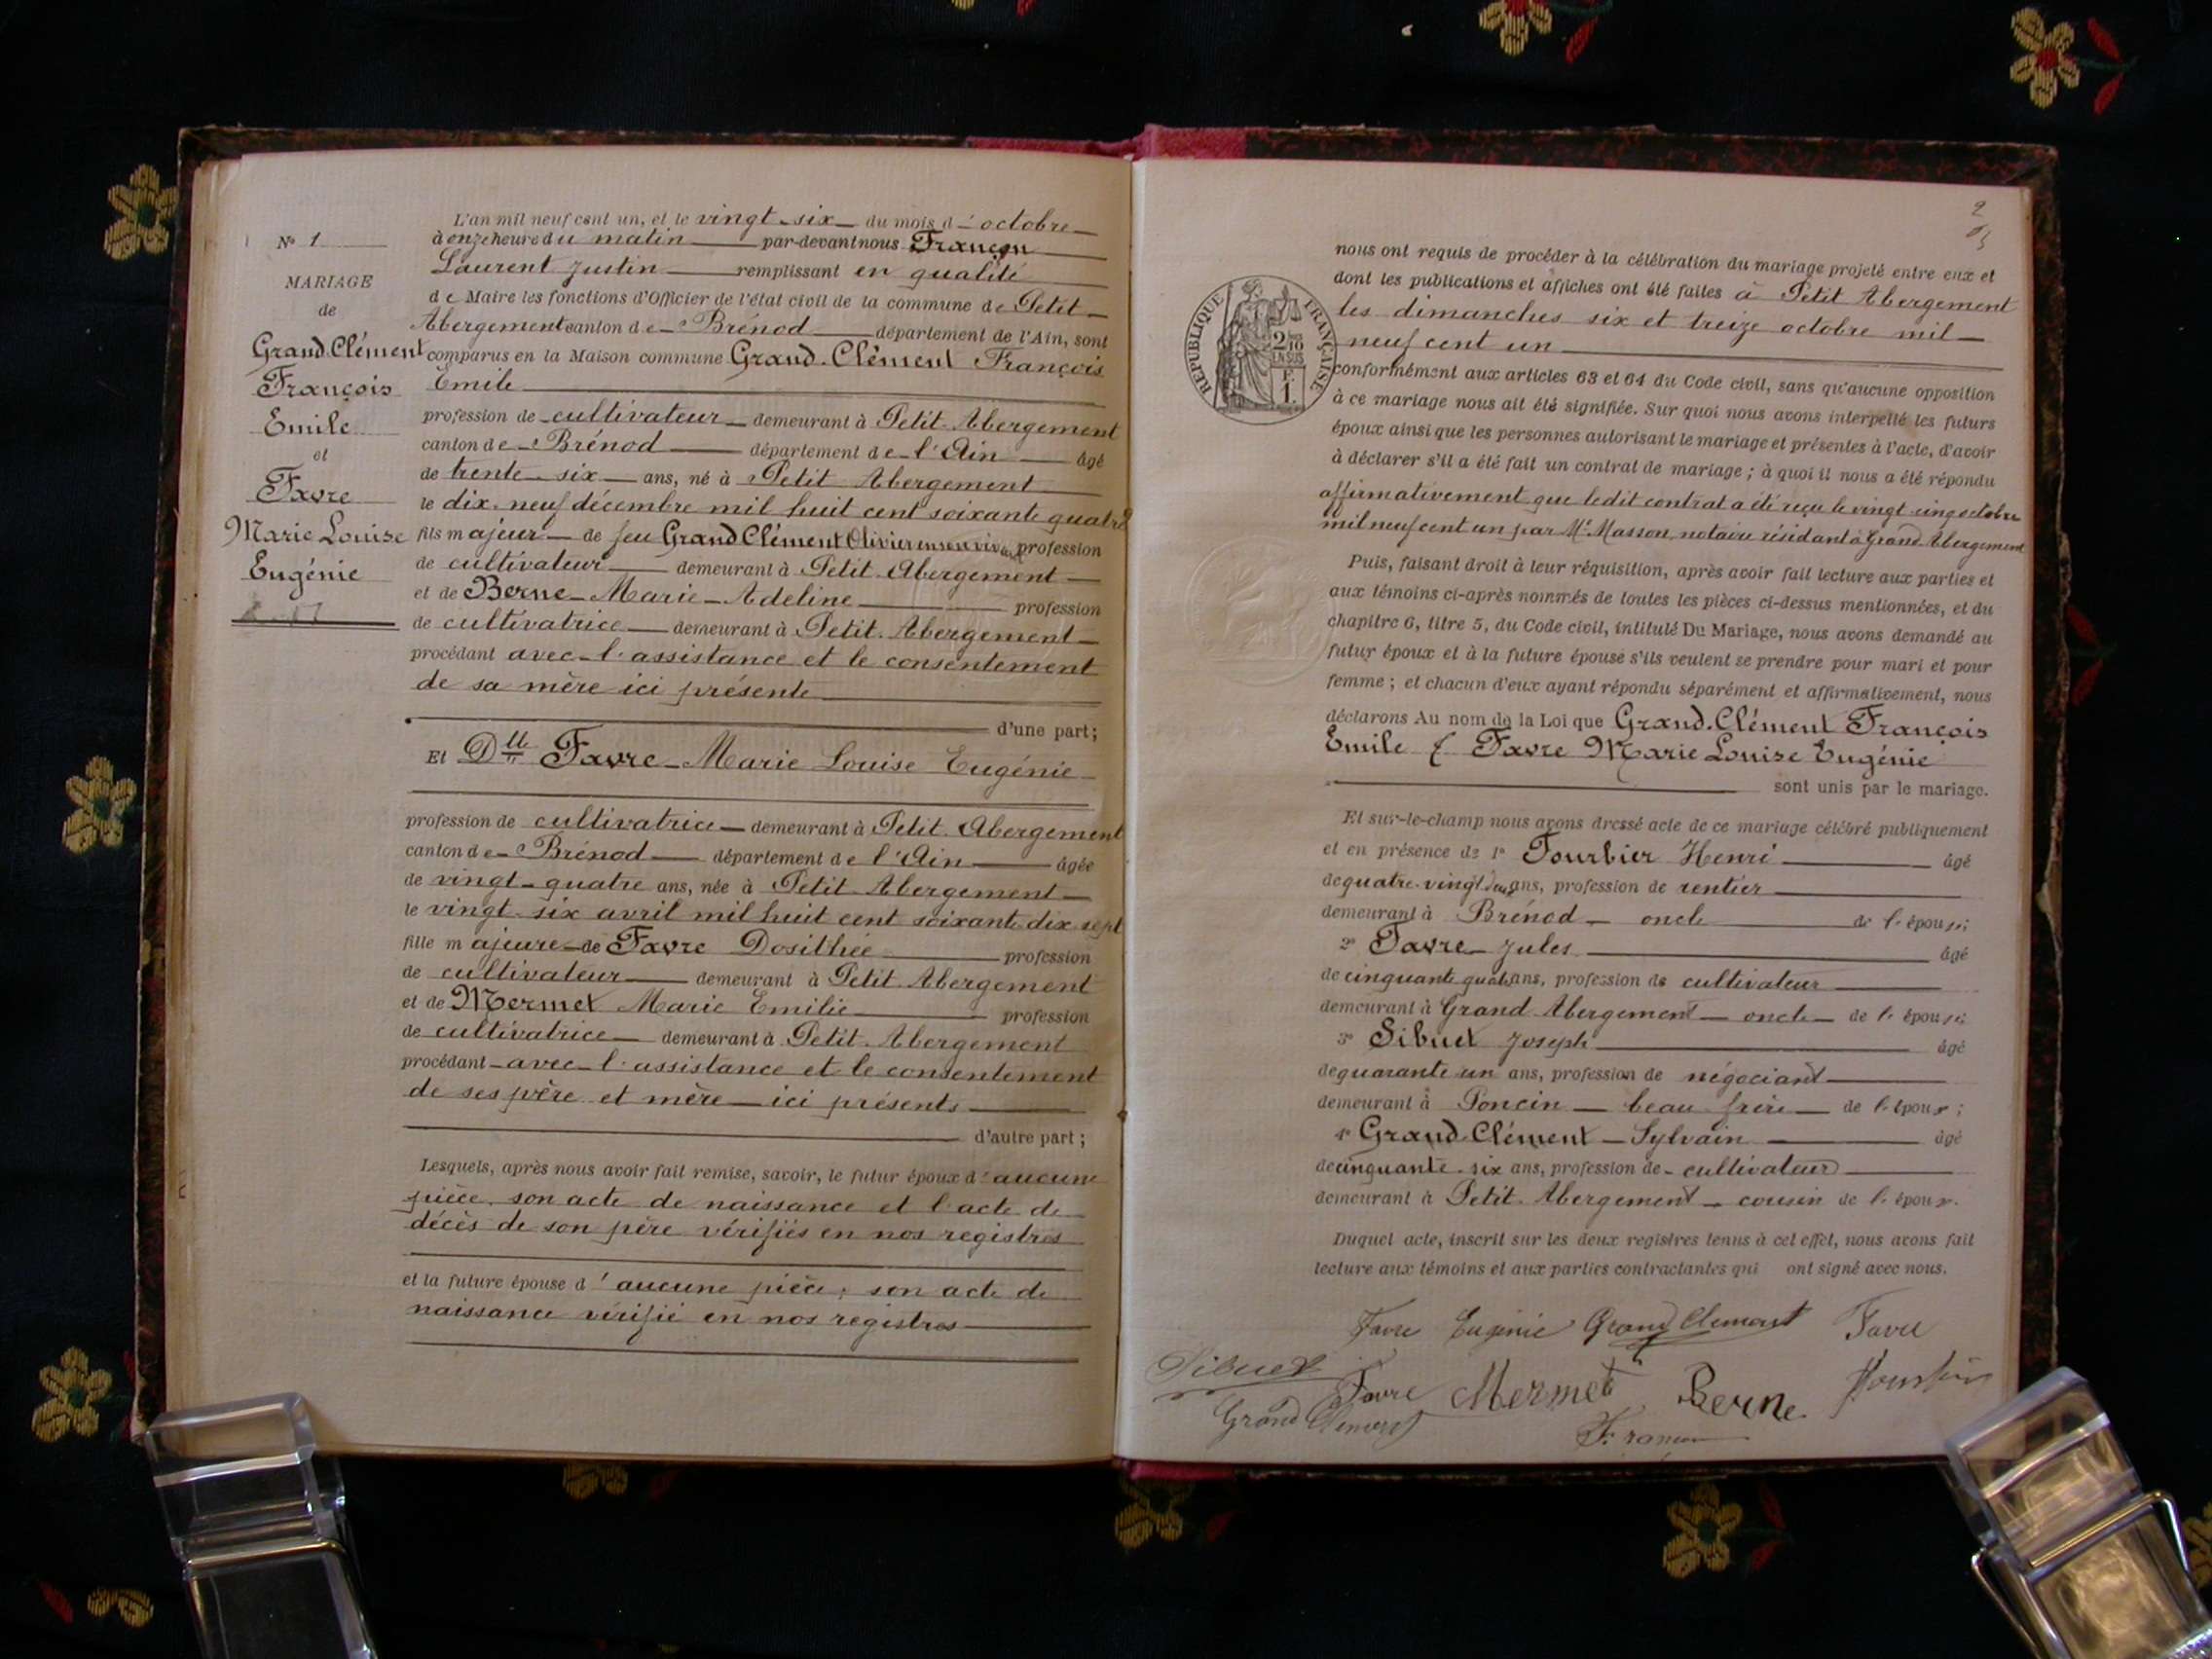 N° 1
MARIAGE
de
Grand-Clément
François
Emile
et
Favre
Marie Louise
Eugénie
L'an mil neuf cent un, et le vingt-six du mois d'octobre
à onze heure du matin par-devant nous Françon
Laurent Justin remplissant en qualité
de Maire les fonctions d'Officier de l'état civil de la commune de Petit
Abergement canton de Brénod département de l'Ain, sont
comparus en la Maison commune Grand-Clément François
Emile
profession de cultivateur demeurant à Petit Abergement
canton de Brénod département de l'Ain âgé
de trente-six ans, né à Petit Abergement
le dix-neuf décembre mil huit cent soixante quatre
fils majeur de feu Grand Clément Olivier en son vivant profession
de cultivateur demeurant à Petit-Abergement
et de Berne Marie Adeline profession
de cultivatrice demeurant à Petit-Abergement
procédant avec l'assistance et le consentement
de sa mère ici présente
d'une part;
Et Dlle Favre Marie Louise Eugénie
profession de cultivatrice demeurant à Petit Abergement
canton de Brénod département de l'Ain âgée
de vingt-quatre ans, née à Petit Abergement
le vingt-six avril mil huit cent soixante dix sept
fille majeure de Favre Dosithée profession
de cultivateur demeurant à Petit Abergement
et de Mermet Marie Emilie profession
de cultivatrice demeurant à Petit-Abergement
procédant avec l'assistance et le consentement
de ses père et mère ici présents
d'autre part;
Lesquels, après nous avoir fait remise, savoir, le futur époux d'aucune
pièce, son acte de naissance et l'acte de
décès de son père vérifiés en nos registres
et la future épouse d'aucune pièce; son acte de
naissance vérifié en nos registres
2
RÉPUBLIQUE FRANÇAISE
2/10 EN SUS
F. 1.
nous ont requis de procéder à la célébration du mariage projeté entre eux et
dont les publications et affiches ont été faites à Petit Abergement
les dimanches six et treize octobre mil
neuf cent un
conformément aux articles 63 et 64 du Code civil, sans qu'aucune opposition
à ce mariage nous ait été signifiée. Sur quoi nous avons interpellé les futurs
époux ainsi que les personnes autorisant le mariage et présentes à l'acte, d'avoir
à déclarer s'il a été fait un contrat de mariage; à quoi il nous a été répondu
affirmativement que ledit contrat a été reçu le vingt cinq octobre
mil neuf cent un par Me Masson, notaire résidant à Grand Abergement
Puis, faisant droit à leur réquisition, après avoir fait lecture aux parties et
aux témoins ci-après nommés de toutes les pièces ci-dessus mentionnées, et du
chapitre 6, titre 5, du Code civil, intitulé Du Mariage, nous avons demandé au
futur époux et à la future épouse s'ils veulent se prendre pour mari et pour
femme; et chacun d'eux ayant répondu séparément et affirmativement, nous
déclarons Au nom de la Loi que Grand-Clément François
Emile & Favre Marie Louise Eugénie
sont unis par le mariage.
Et sur-le-champ nous avons dressé acte de ce mariage célébré publiquement
et en présence de 1° Tourbier Henri âgé
de quatre-vingt deux ans, profession de rentier
demeurant à Brénod oncle de l'épouse;
2° Favre Jules âgé
de cinquante quatre ans, profession de cultivateur
demeurant à Grand Abergement oncle de l'épouse;
3° Sibuet Joseph âgé
de quarante un ans, profession de négociant
demeurant à Poncin beau-frère de l'époux;
4° Grand-Clément Sylvain âgé
de cinquante-six ans, profession de cultivateur
demeurant à Petit-Abergement cousin de l'époux.
Duquel acte, inscrit sur les deux registres tenus à cet effet, nous avons fait
lecture aux témoins et aux parties contractantes qui ont signé avec nous.
Favre Eugénie Grand Clement Favre
Sibuet Favre Mermet Berne
Grand Clement